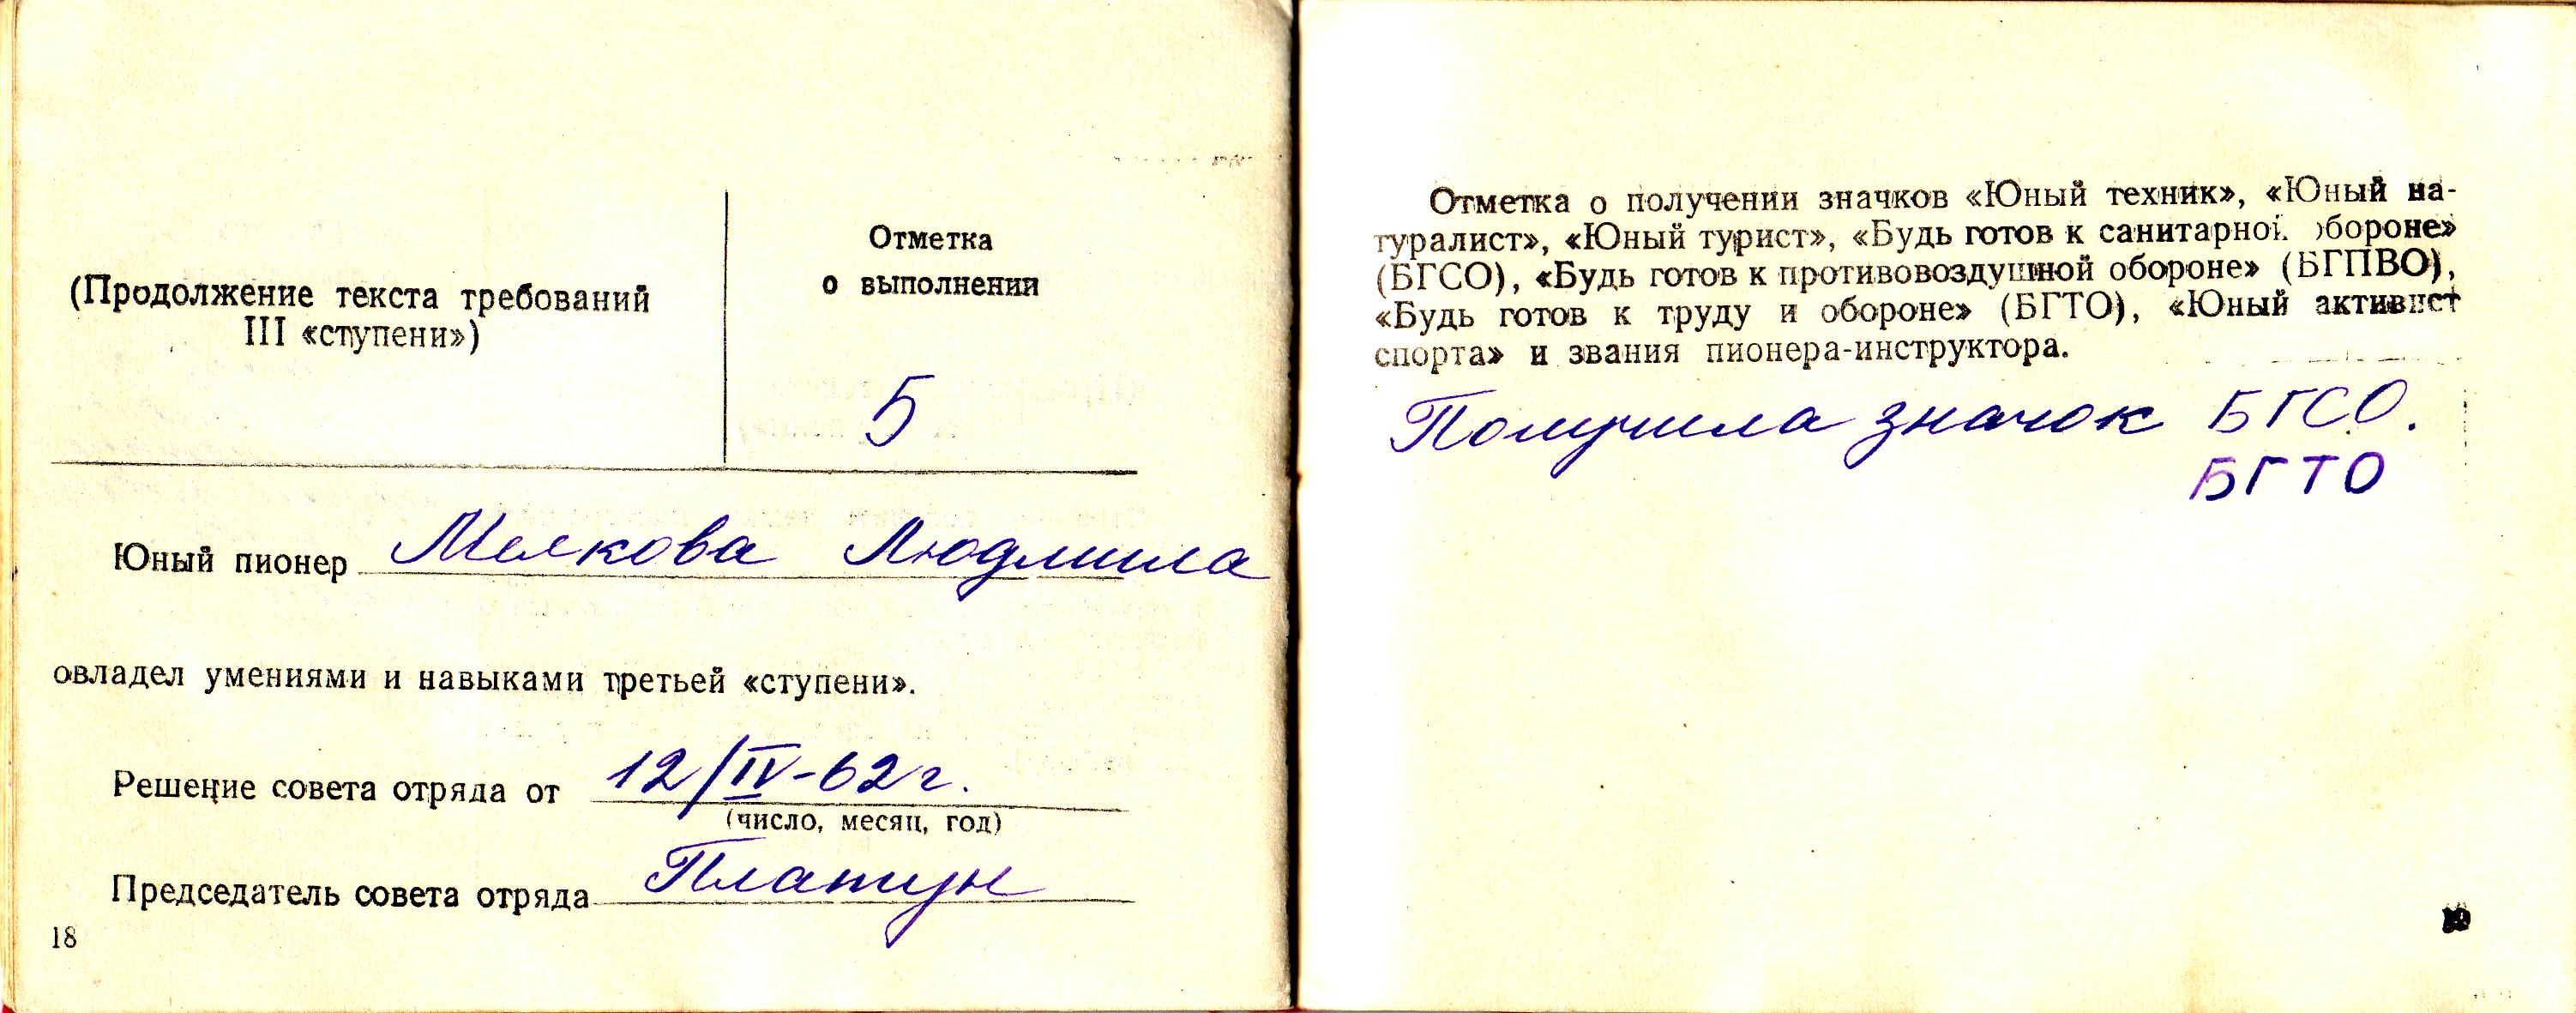 (Продолжение текста требований
III «ступени»)
Отметка
о выполнении
5
Юный пионер Мелкова Людмила
овладел умениями и навыками третьей «ступени».
Решение совета отряда от 12/IV-62 г.
(число, месяц, год)
Председатель совета отряда
18
Отметка о получении значков «Юный техник», «Юный на-
туралист», «Юный турист», «Будь готов к санитарной обороне»
(БГСО), «Будь готов к противовоздушной обороне» (БГПВО),
«Будь готов к труду и обороне» (БГТО), «Юный активист
спорта» и звания пионера-инструктора.
Получила значок БГСО.
БГТО